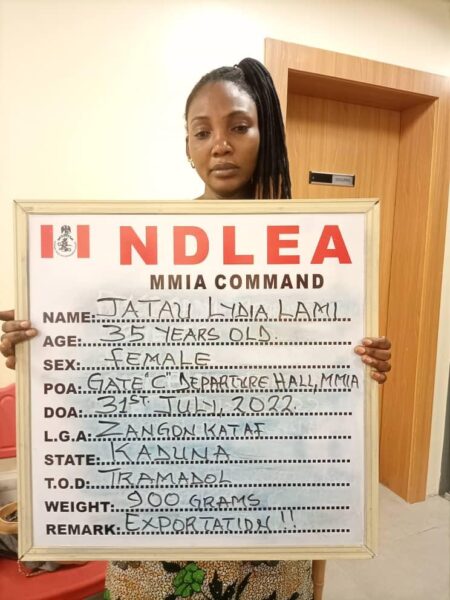 NDLEA
MMIA COMMAND
NAME: JATAU LYDIA LAMI
AGE: 35 YEARS OLD.
SEX: FEMALE
POA: GATE "C" DEPARTURE HALL, MMIA
DOA: 31ST. JULY, 2022.
L.G.A: ZANGON KATAF
STATE: KADUNA
T.O.D: TRAMADOL
WEIGHT: 900 GRAMS
REMARK: EXPORTATION !!